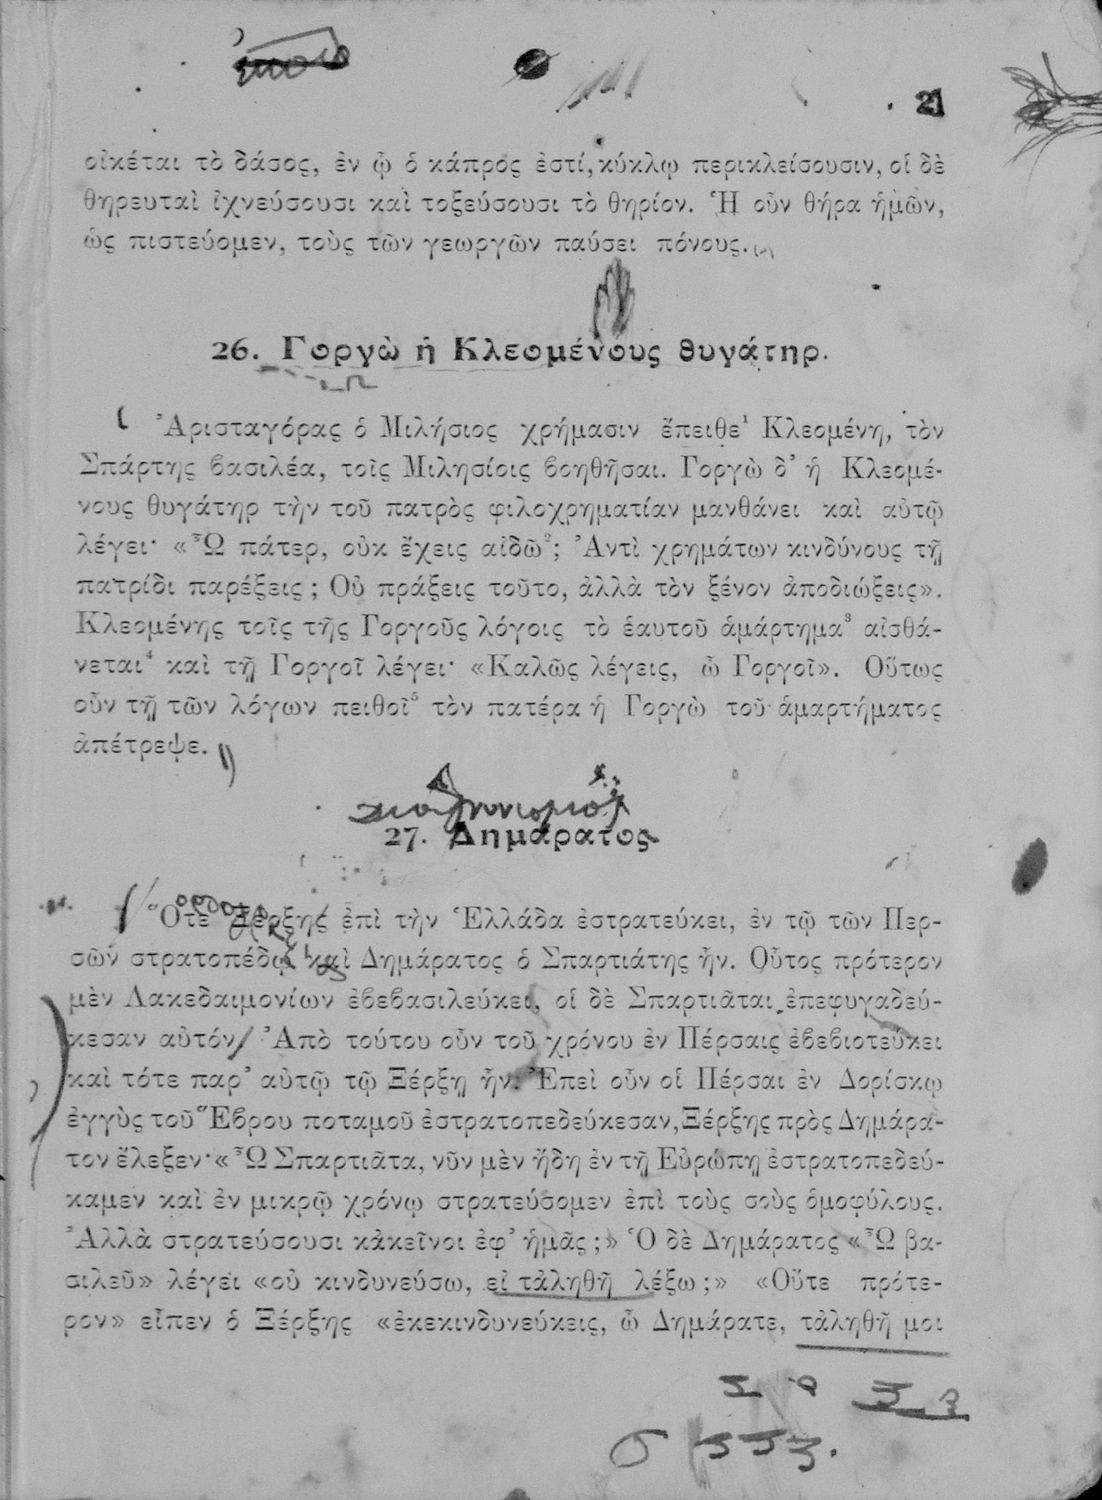 21
οἰκέται τὸ δάσος, ἐν ᾧ ὁ κάπρος ἐστί, κύκλῳ περικλείσουσιν, οἱ δὲ
θηρευταὶ ἰχνεύσουσι καὶ τοξεύσουσι τὸ θηρίον. Ἡ οὖν θήρα ἡμῶν,
ὡς πιστεύομεν, τοὺς τῶν γεωργῶν παύσει πόνους.
26. Γοργὼ ἡ Κλεομένους θυγάτηρ.
Ἀρισταγόρας ὁ Μιλήσιος χρήμασιν ἔπειθε¹ Κλεομένη, τὸν
Σπάρτης βασιλέα, τοῖς Μιλησίοις βοηθῆσαι. Γοργὼ δ’ ἡ Κλεομέ-
νους θυγάτηρ τὴν τοῦ πατρὸς φιλοχρηματίαν μανθάνει καὶ αὐτῷ
λέγει· «Ὦ πάτερ, οὐκ ἔχεις αἰδῶ²; Ἀντὶ χρημάτων κινδύνους τῇ
πατρίδι παρέξεις; Οὐ πράξεις τοῦτο, ἀλλὰ τὸν ξένον ἀποδιώξεις».
Κλεομένης τοῖς τῆς Γοργοῦς λόγοις τὸ ἑαυτοῦ ἁμάρτημα³ αἰσθά-
νεται⁴ καὶ τῇ Γοργοῖ λέγει· «Καλῶς λέγεις, ὦ Γοργοῖ». Οὕτως
οὖν τῇ τῶν λόγων πειθοῖ⁵ τὸν πατέρα ἡ Γοργὼ τοῦ ἁμαρτήματος
ἀπέτρεψε.
27. Δημάρατος
Ὅτε Ξέρξης ἐπὶ τὴν Ἑλλάδα ἐστρατεύκει, ἐν τῷ τῶν Περ-
σῶν στρατοπέδῳ καὶ Δημάρατος ὁ Σπαρτιάτης ἦν. Οὗτος πρότερον
μὲν Λακεδαιμονίων ἐβεβασιλεύκει, οἱ δὲ Σπαρτιᾶται ἐπεφυγαδεύ-
κεσαν αὐτόν. Ἀπὸ τούτου οὖν τοῦ χρόνου ἐν Πέρσαις ἐβεβιοτεύκει
καὶ τότε παρ’ αὐτῷ τῷ Ξέρξῃ ἦν. Ἐπεὶ οὖν οἱ Πέρσαι ἐν Δορίσκῳ
ἐγγὺς τοῦ Ἕβρου ποταμοῦ ἐστρατοπεδεύκεσαν, Ξέρξης πρὸς Δημάρα-
τον ἔλεξεν· «Ὦ Σπαρτιᾶτα, νῦν μὲν ἤδη ἐν τῇ Εὐρώπῃ ἐστρατοπεδεύ-
καμεν καὶ ἐν μικρῷ χρόνῳ στρατεύσομεν ἐπὶ τοὺς σοὺς ὁμοφύλους.
Ἀλλὰ στρατεύσουσι κἀκεῖνοι ἐφ’ ἡμᾶς;» Ὁ δὲ Δημάρατος «Ὦ βα-
σιλεῦ» λέγει «οὐ κινδυνεύσω, εἰ τἀληθῆ λέξω;» «Οὔτε πρότε-
ρον» εἶπεν ὁ Ξέρξης «ἐκεκινδυνεύκεις, ὦ Δημάρατε, τἀληθῆ μοι